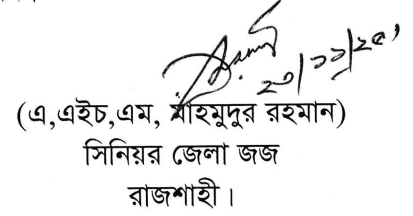 ২০/১১/২৫
(এ,এইচ,এম, মাহমুদুর রহমান)
সিনিয়র জেলা জজ
রাজশাহী।